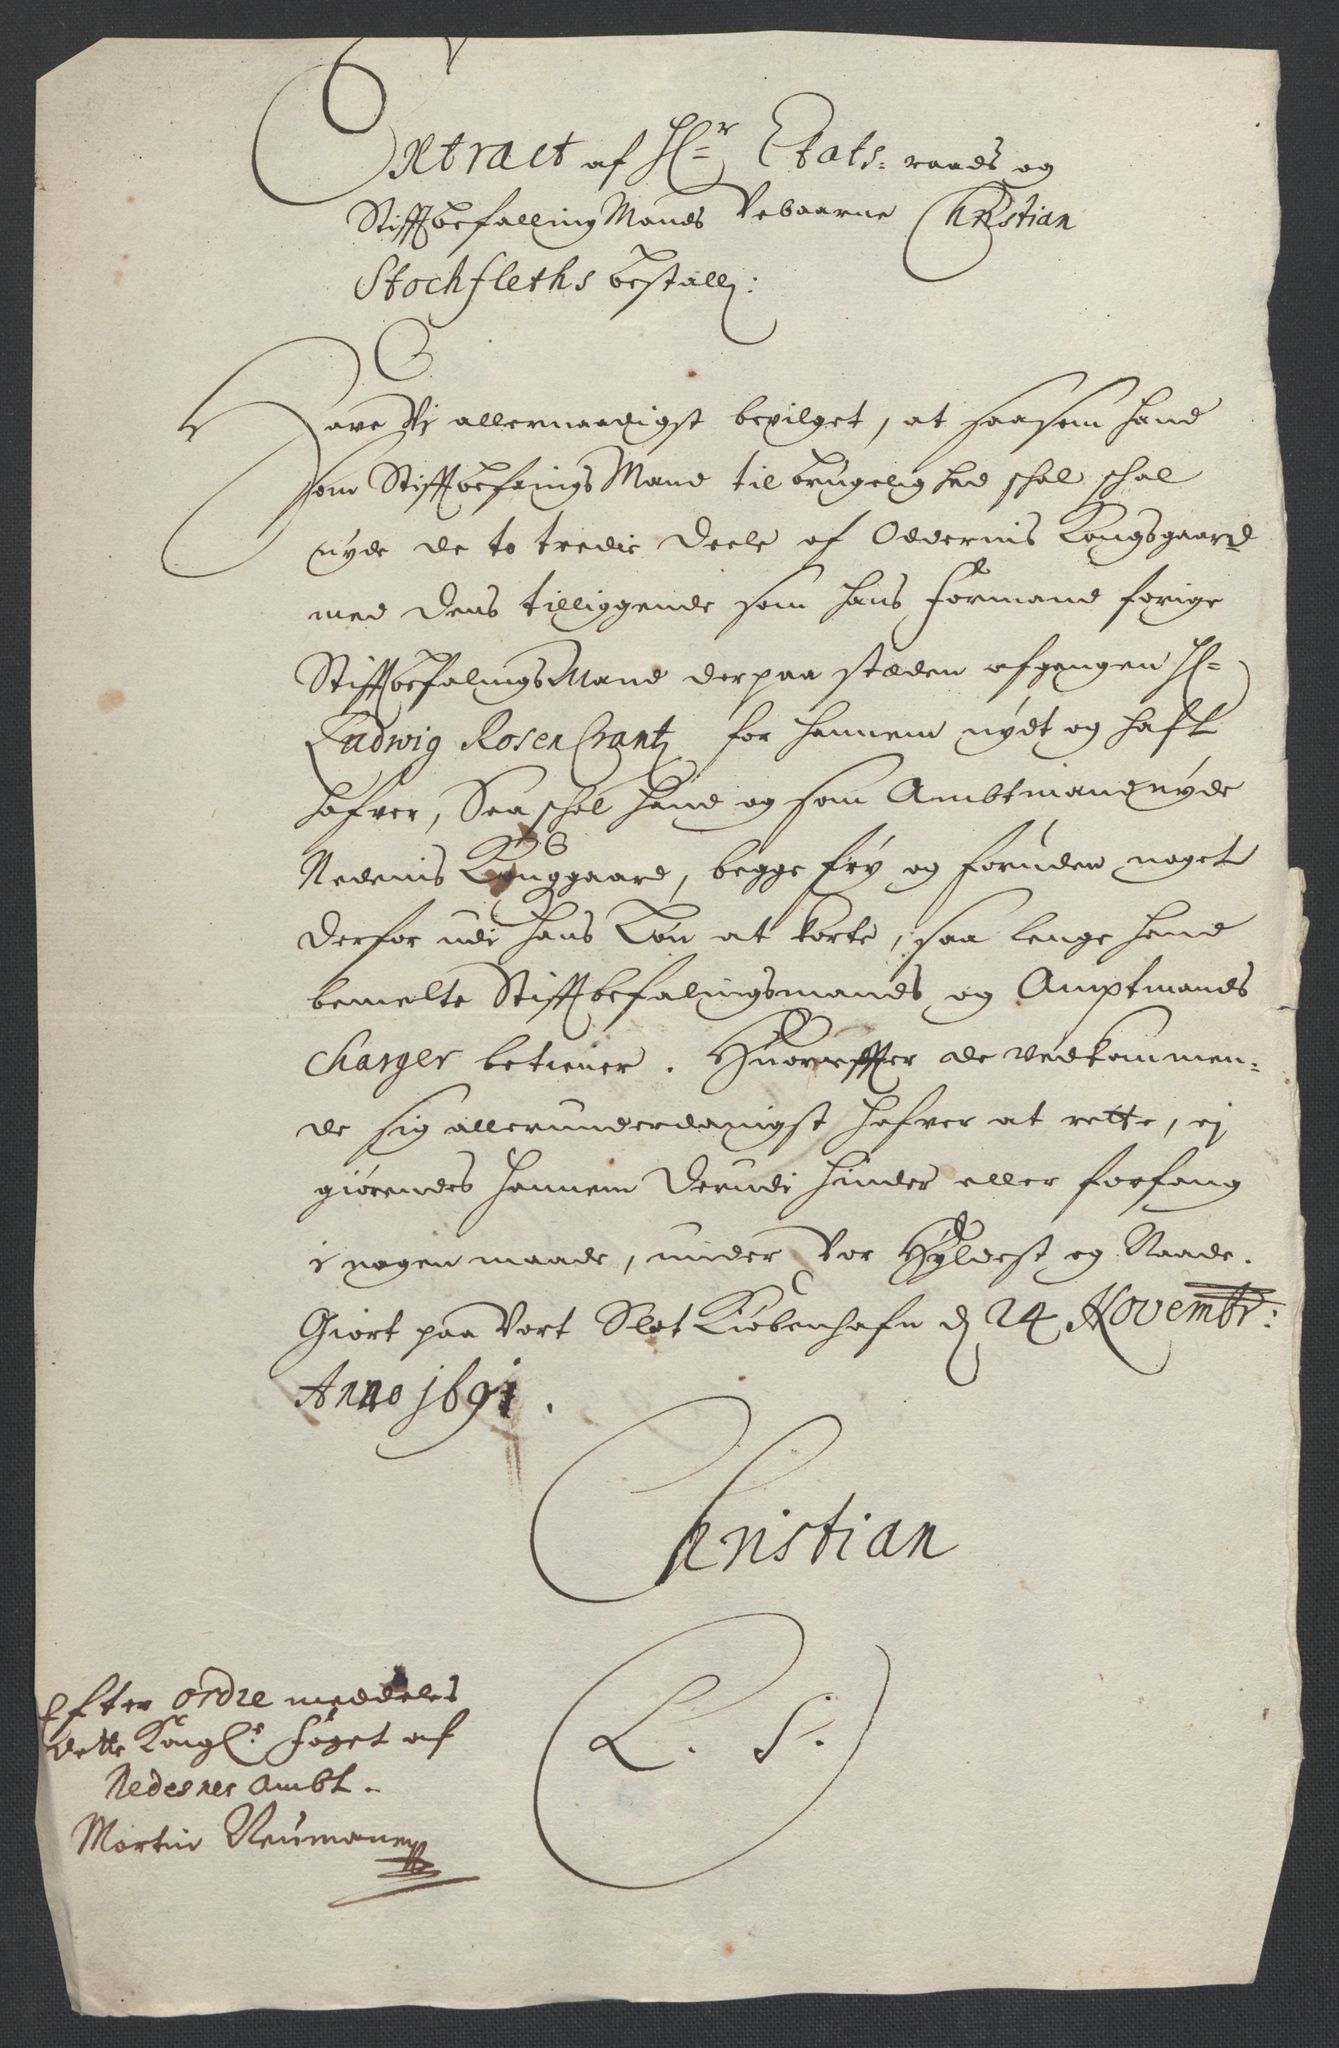 Extract af Hr Etats-raads og
Stiftbefalling Mands Velbaarne Christian
Stochfleths bestall:
Have Vi allernaadigst bevilget, at saasom hand
som Stiftbefalings Mand til brugelighed schal schal
nyde de to tredie deele af Oddernis Kongsgaard
med dens tilliggende som hans Formand forige
StiftbefalingsMand der paa stæden afgangen Hr
Ludwig RosenCrantz for hannem nydt og haft
hafver, Saa schal hand og som Ambtmand nyde
Nedenis Kongsgaard, begge fry og foruden noget
derfor udi hans Løn at korte, saa lenge hand
bemelte Stiftbefalingsmands og Amptmands
Charger betiener. Huorefter de vedkommen-
de sig allerunderdanigst hafver at rette, ej
giørendes hannem derudi hinder eller forfang
i nogen maade, under Vor Hyldest og Naade.
Giort paa Vort Slot Kiøbenhafn d 24 Novembr:
Anno 1691.
Christian
L. S.
Efter ordre meddeles
dette Kongl: foget af
Nedenes Ambt.
Morten Neumann